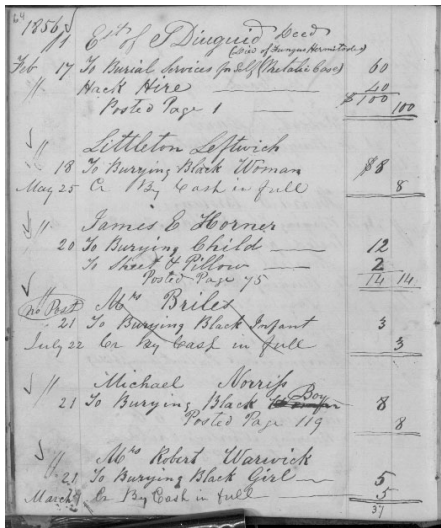 64
1856
" Est of S Diuguid Decd
Feb 17 To Burial Services for Self (Metalic Case) 60
" Hack Hire 40
Posted Page 1 $100 100
" Littleton Leftwich
18 To Burying Black Woman $8
May 25 Cr By Cash in full 8
" James E Horner
20 To Burying Child 12
To Sheet & Pillow 2
Posted Page 75 14 14
" Mrs Briles
no Post
21 To Burying Black Infant 3
July 22 Cr By Cash in full 3
" Michael Norriss
21 To Burying Black Boy 8
Posted Page 119 8
" Mrs Robert Warwick
21 To Burying Black Girl 5
March Cr By Cash in full 5
37